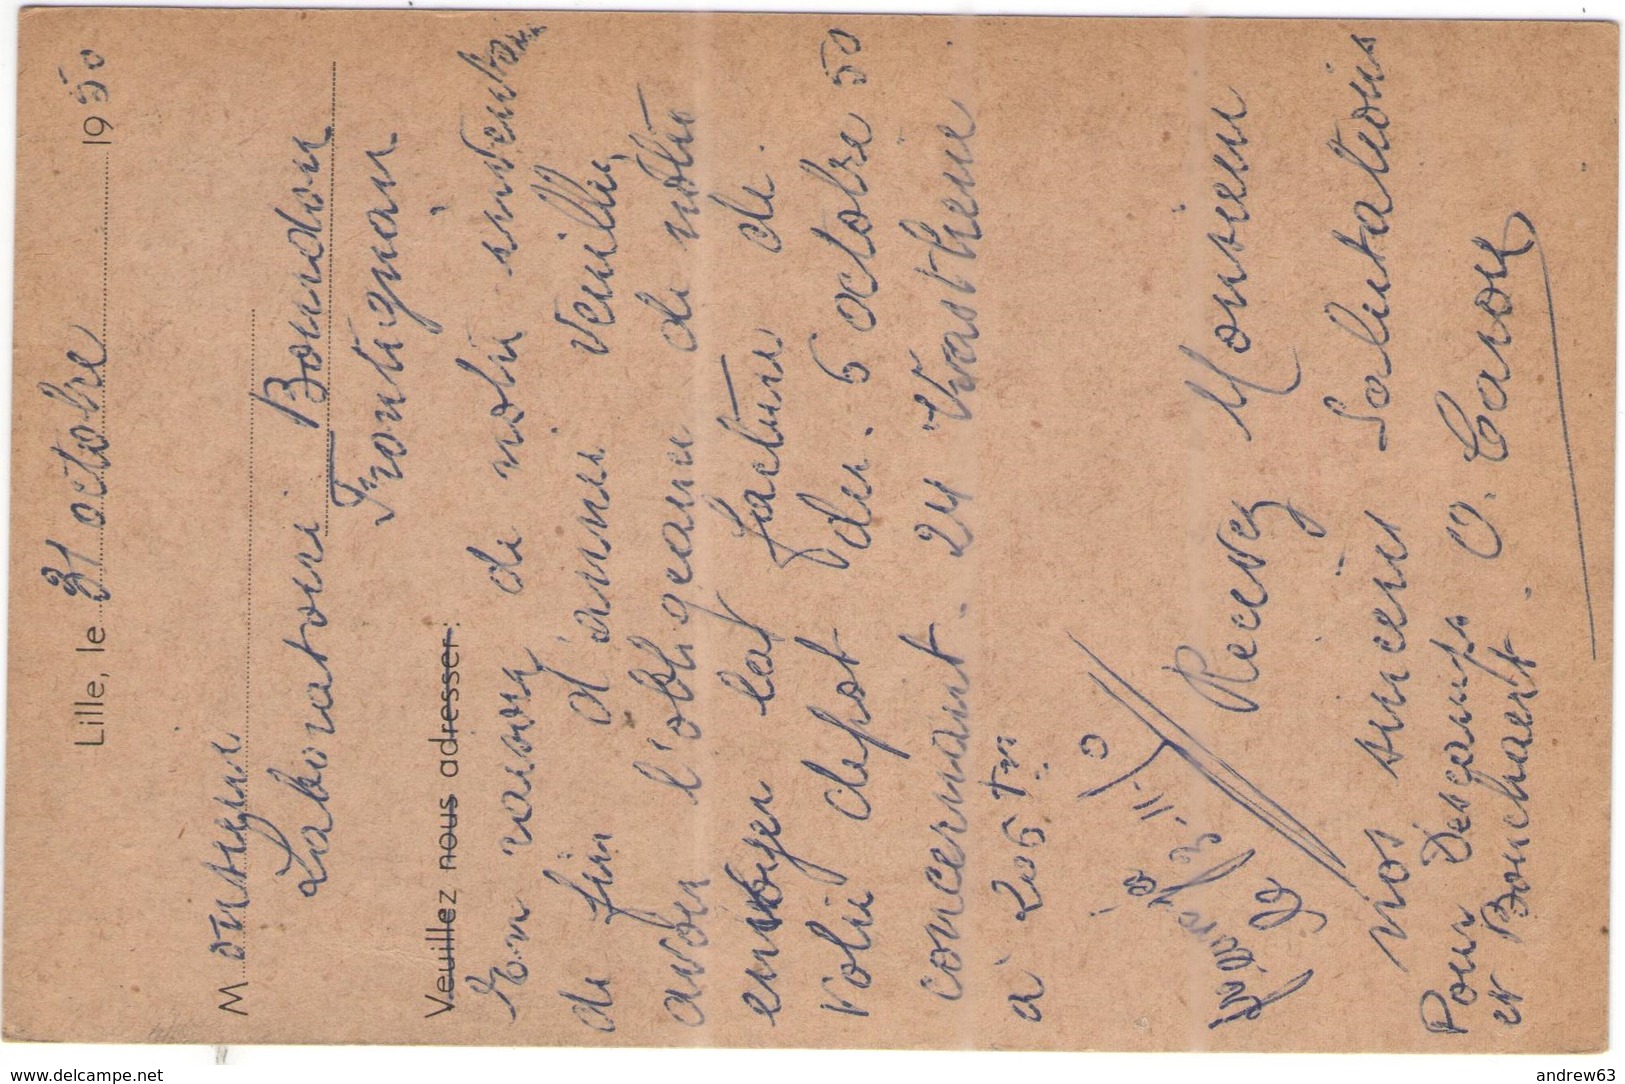 Lille, le 31 octobre 1950
Monsieur
Laboratoire Bourdon
Frontignan
Veuillez nous adresser :
En raison de notre inventaire
de fin d'année veuillez
avoir l'obligeance de nous
envoyer la facture de
votre dépot du 5 octobre 50
concernant 24
à 205 frs
Recevez Monsieur
nos sincères Salutations
Pour Descamps O. Caron
et Bouchaert.
www.delcampe.net
andrew63